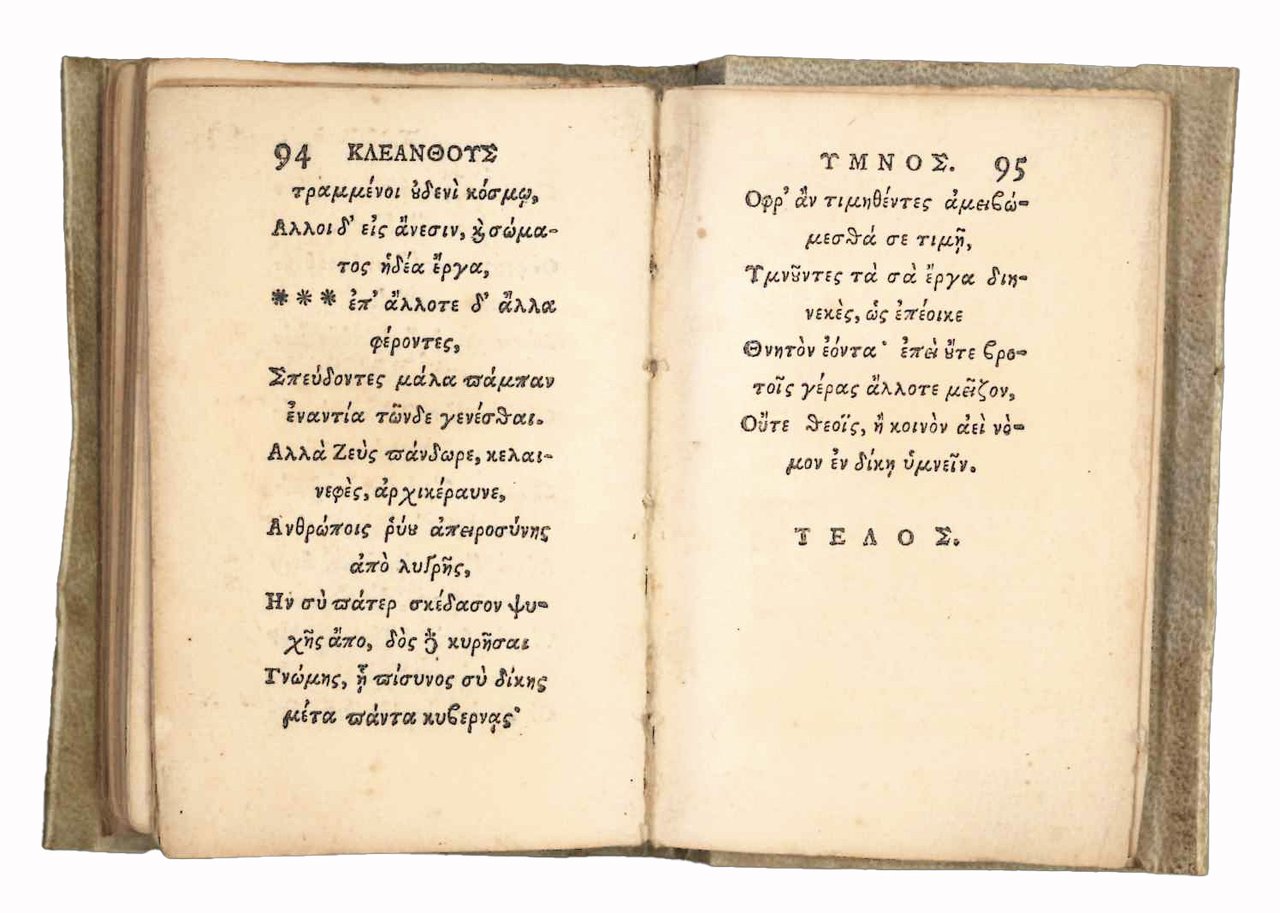 94 ΚΛΕΑΝΘΟΥΣ
τραμμένοι ȣ̓δενὶ κόσμῳ,
Αλλοι δ' εἰς ἄνεσιν, ϗ̀ σώμα-
τος ἡδέα ἔργα,
*** ἐπ' ἄλλοτε δ' ἄλλα
φέροντες,
Σπεύδοντες μάλα ϖάμπαν
ἐναντία τῶνδε γενέσϑαι.
Αλλὰ Ζεὺς ϖάνδωρε, κελαι-
νεφὲς, ἀρχικέραυνε,
Ανθρώποις ῥύȣ ἀπειροσύνης
ἀπὸ λυγρῆς,
Ην σὺ ϖάτερ σκέδασον ψυ-
χῆς ἄπο, δὸς δὲ κυρῆσαι
Γνώμης, ᾗ ϖίσυνος σὺ δίκης
μέτα ϖάντα κυβερνᾷς·
ΥΜΝΟΣ. 95
Οφρ' ἂν τιμηθέντες ἀμειβώ-
μεσϑά σε τιμῇ,
Υμνȣ͂ντες τὰ σὰ ἔργα διη-
νεκὲς, ὡς ἐπέοικε
Θνητὸν ἐόντα· ἐπεὶ ȣ̓́τε βρο-
τοῖς γέρας ἄλλοτε μεῖζον,
Οὔτε ϑεοῖς, ἢ κοινὸν ἀεὶ νὸ-
μον ἐν δίκῃ ὑμνεῖν.
ΤΕΛΟΣ.